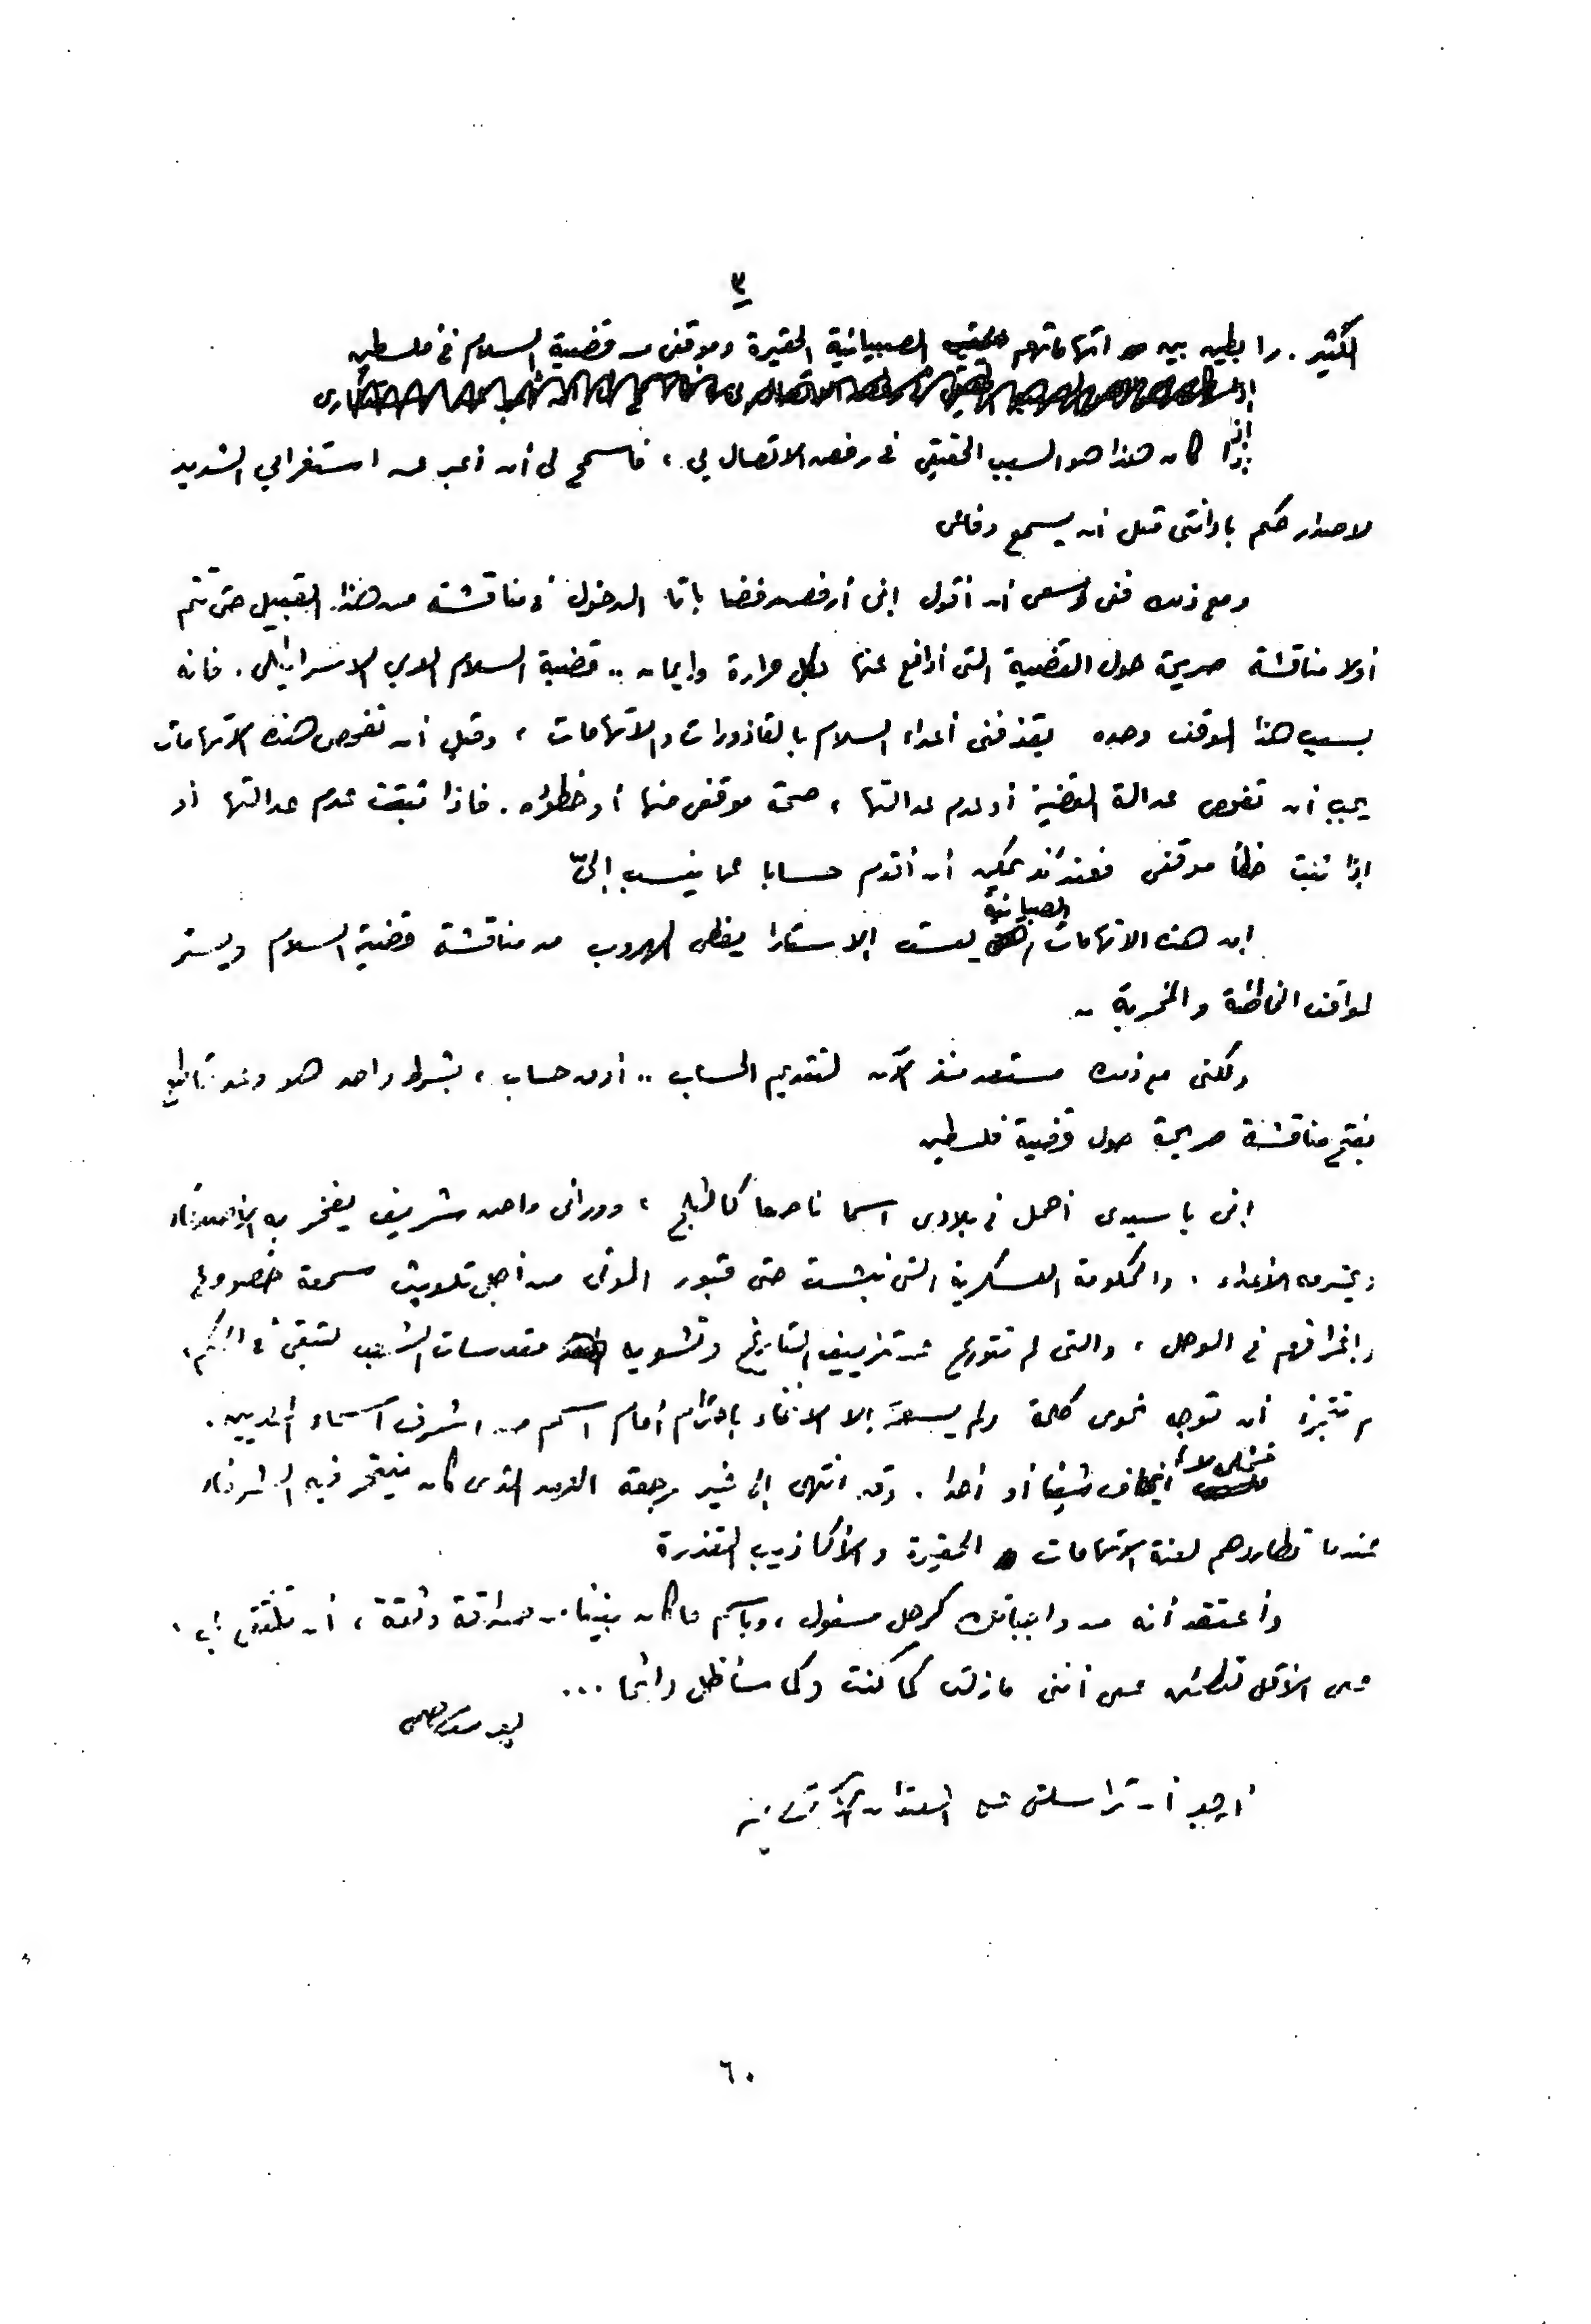 ٣
الكثير . رابطين بين اتهاماتهم الصبيانية الحقيرة وموقفى من قضية السلام فى فلسطين
إذا كان هذا هو السبب الحقيقى فى رفض الاتصال بى ، فاسمح لى أن أعبر عن استغرابى الشديد
لاصدار حكم بادانتى قبل أن يسمع دفاعى
ومع ذلك فنى وسعى أن أقول إنى أرفض رفضا باتا الدخول فى مناقشة من هذا القبيل حتى تتم
أولا مناقشة صريحة حول القضية التى أدافع عنها بكل حرارة وإيمان .. قضية السلام العربى الاسرائيلى . فانه
بسبب هذا الموقف وحده يقذفنى أعداء السلام بالقاذورات والاتهامات ، وقبل أن تفحص هذه الاتهامات
يجب أن تفحص عدالة القضية أو عدم عدالتها ، صحة موقفى منها أو خطؤه . فاذا ثبتت عدم عدالتها أو
إذا ثبت خطأ موقفى فعندئذ يمكن أن أقدم حسابا عما ينسب إلىّ
إن هذه الاتهامات الصبيانية ليست إلا ستارا يغطى الهروب من مناقشة قضية السلام ويستر
المواقف الخاطئة والمخربة ..
ولكنى مع ذلك مستعد منذ الآن لتقديم الحساب .. أدق حساب ، بشرط واحد هو وعد قاطع
بفتح مناقشة صريحة حول قضية فلسطين
إنى يا سيدى أحمل فى بلادى اسما ناصعا كالثلج ، وورائى ماض شريف يفخر به الأصدقاء
ويحترمه الأعداء . والحكومة العسكرية التى نبشت حتى قبور الموتى من أجل تلويث سمعة خصومها
وإغراقهم فى الوحل ، والتى لم تتورع عن تزييف التاريخ وتشويه مقدسات الشعب لتبقى فى الحكم ،
لم تجرؤ أن توجه نحوى كلمة ولم يسعها إلا الانحناء باحترام أمام اسم من اشرف أسماء المصريين .
فمثلى لا يخاف شيئا أو أحدا . وقد انتهى إلى غير رجعة العهد الذى كان ينتحر فيه الشرفاء
عندما تطاردهم لعنة الاتهامات الحقيرة والأكاذيب القذرة
وأعتقد أنه من واجباتك كرجل مسئول ، وباسم ما كان بيننا من صداقة وثقة ، أن تلتقى بى ،
على الأقل لتطمئن على أننى مازلت كما كنت وكما سأظل دائما ...
يوسف حلمى
أرجو أن تراسلنى على العنوان
٦٠